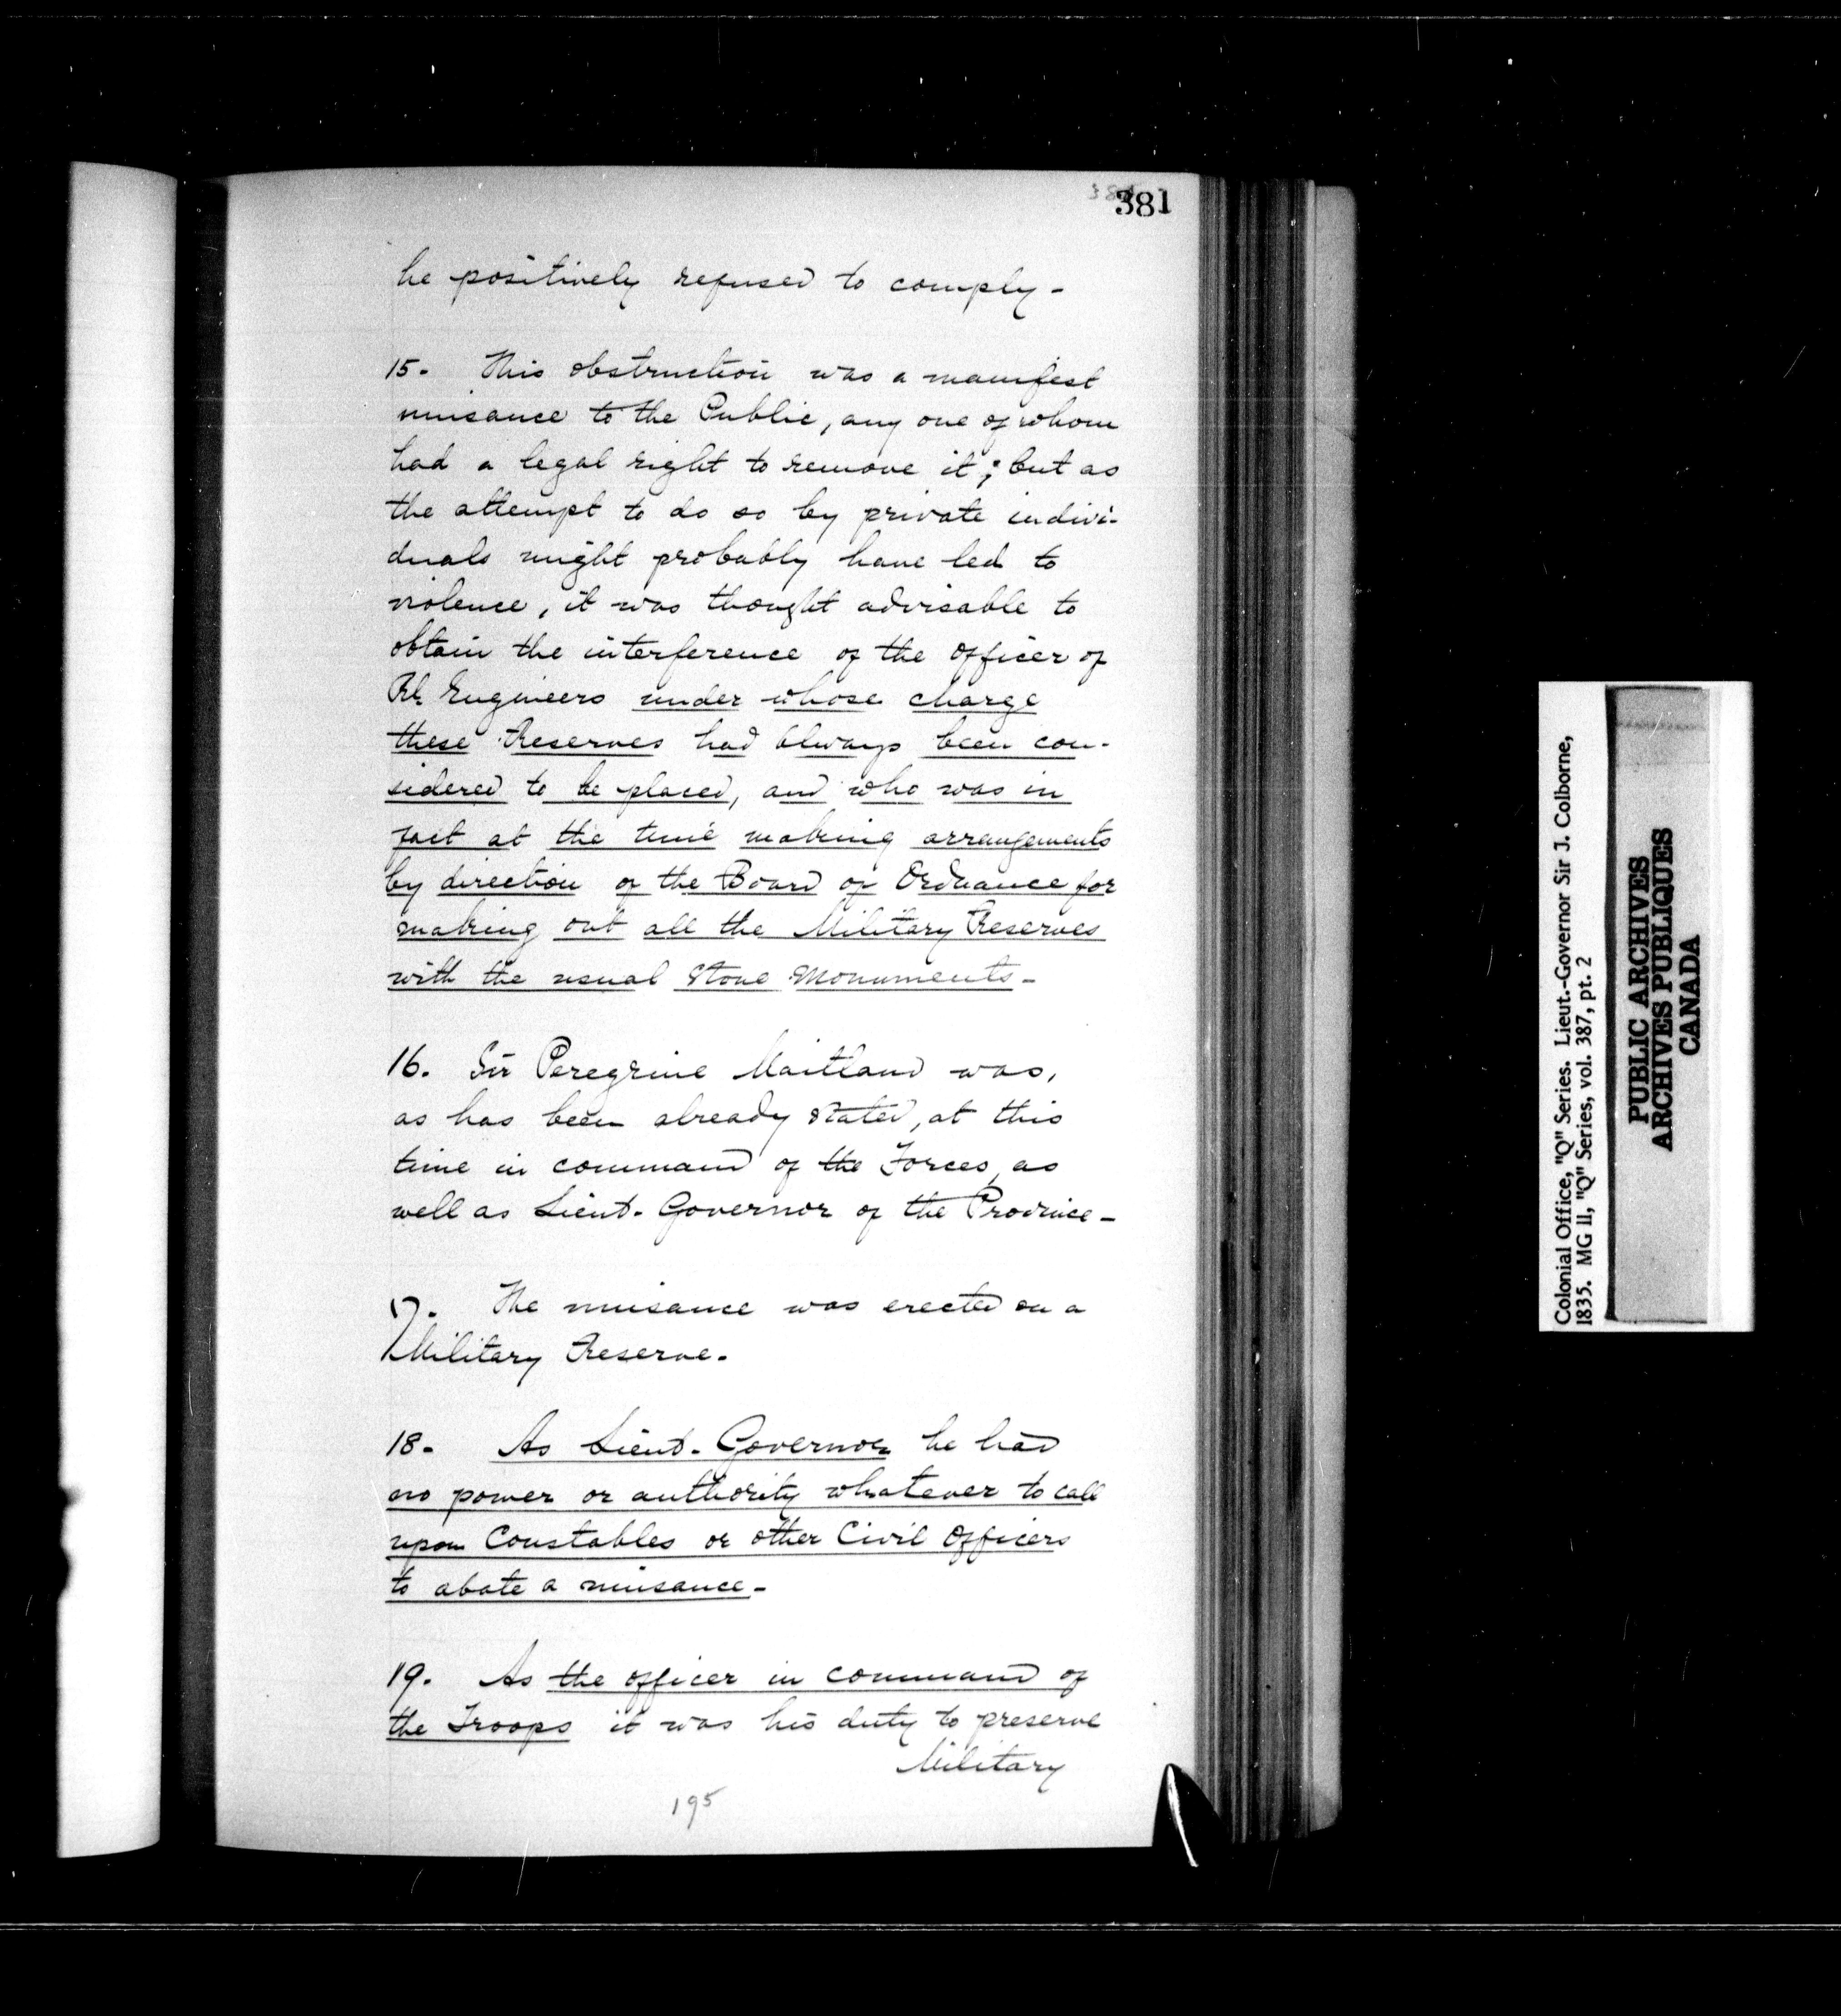 381
he positively refused to comply -
15. This obstruction was a manifest
nuisance to the Public, any one of whom
had a legal right to remove it; but as
the attempt to do so by private indivi-
duals might probably have led to
violence, it was thought advisable to
obtain the interference of the Officer of
Rl. Engineers under whose charge
these Reserves had always been con-
sidered to be placed, and who was in
fact at the time making arrangements
by direction of the Board of Ordnance for
making out all the Military Reserves
with the usual Stone Monuments -
16. Sir Peregrine Maitland was,
as has been already stated, at this
time in command of the Forces, as
well as Lieut. Governor of the Province -
17. The nuisance was erected on a
Military Reserve.
18. As Lieut. Governor he had
no power or authority whatever to call
upon Constables or other Civil Officers
to abate a nuisance -
19. As the officer in command of
the Troops it was his duty to preserve
Military
195
Colonial Office, "Q" Series. Lieut.-Governor Sir J. Colborne,
1835. MG 11, "Q" Series, vol. 387, pt. 2
PUBLIC ARCHIVES
ARCHIVES PUBLIQUES
CANADA